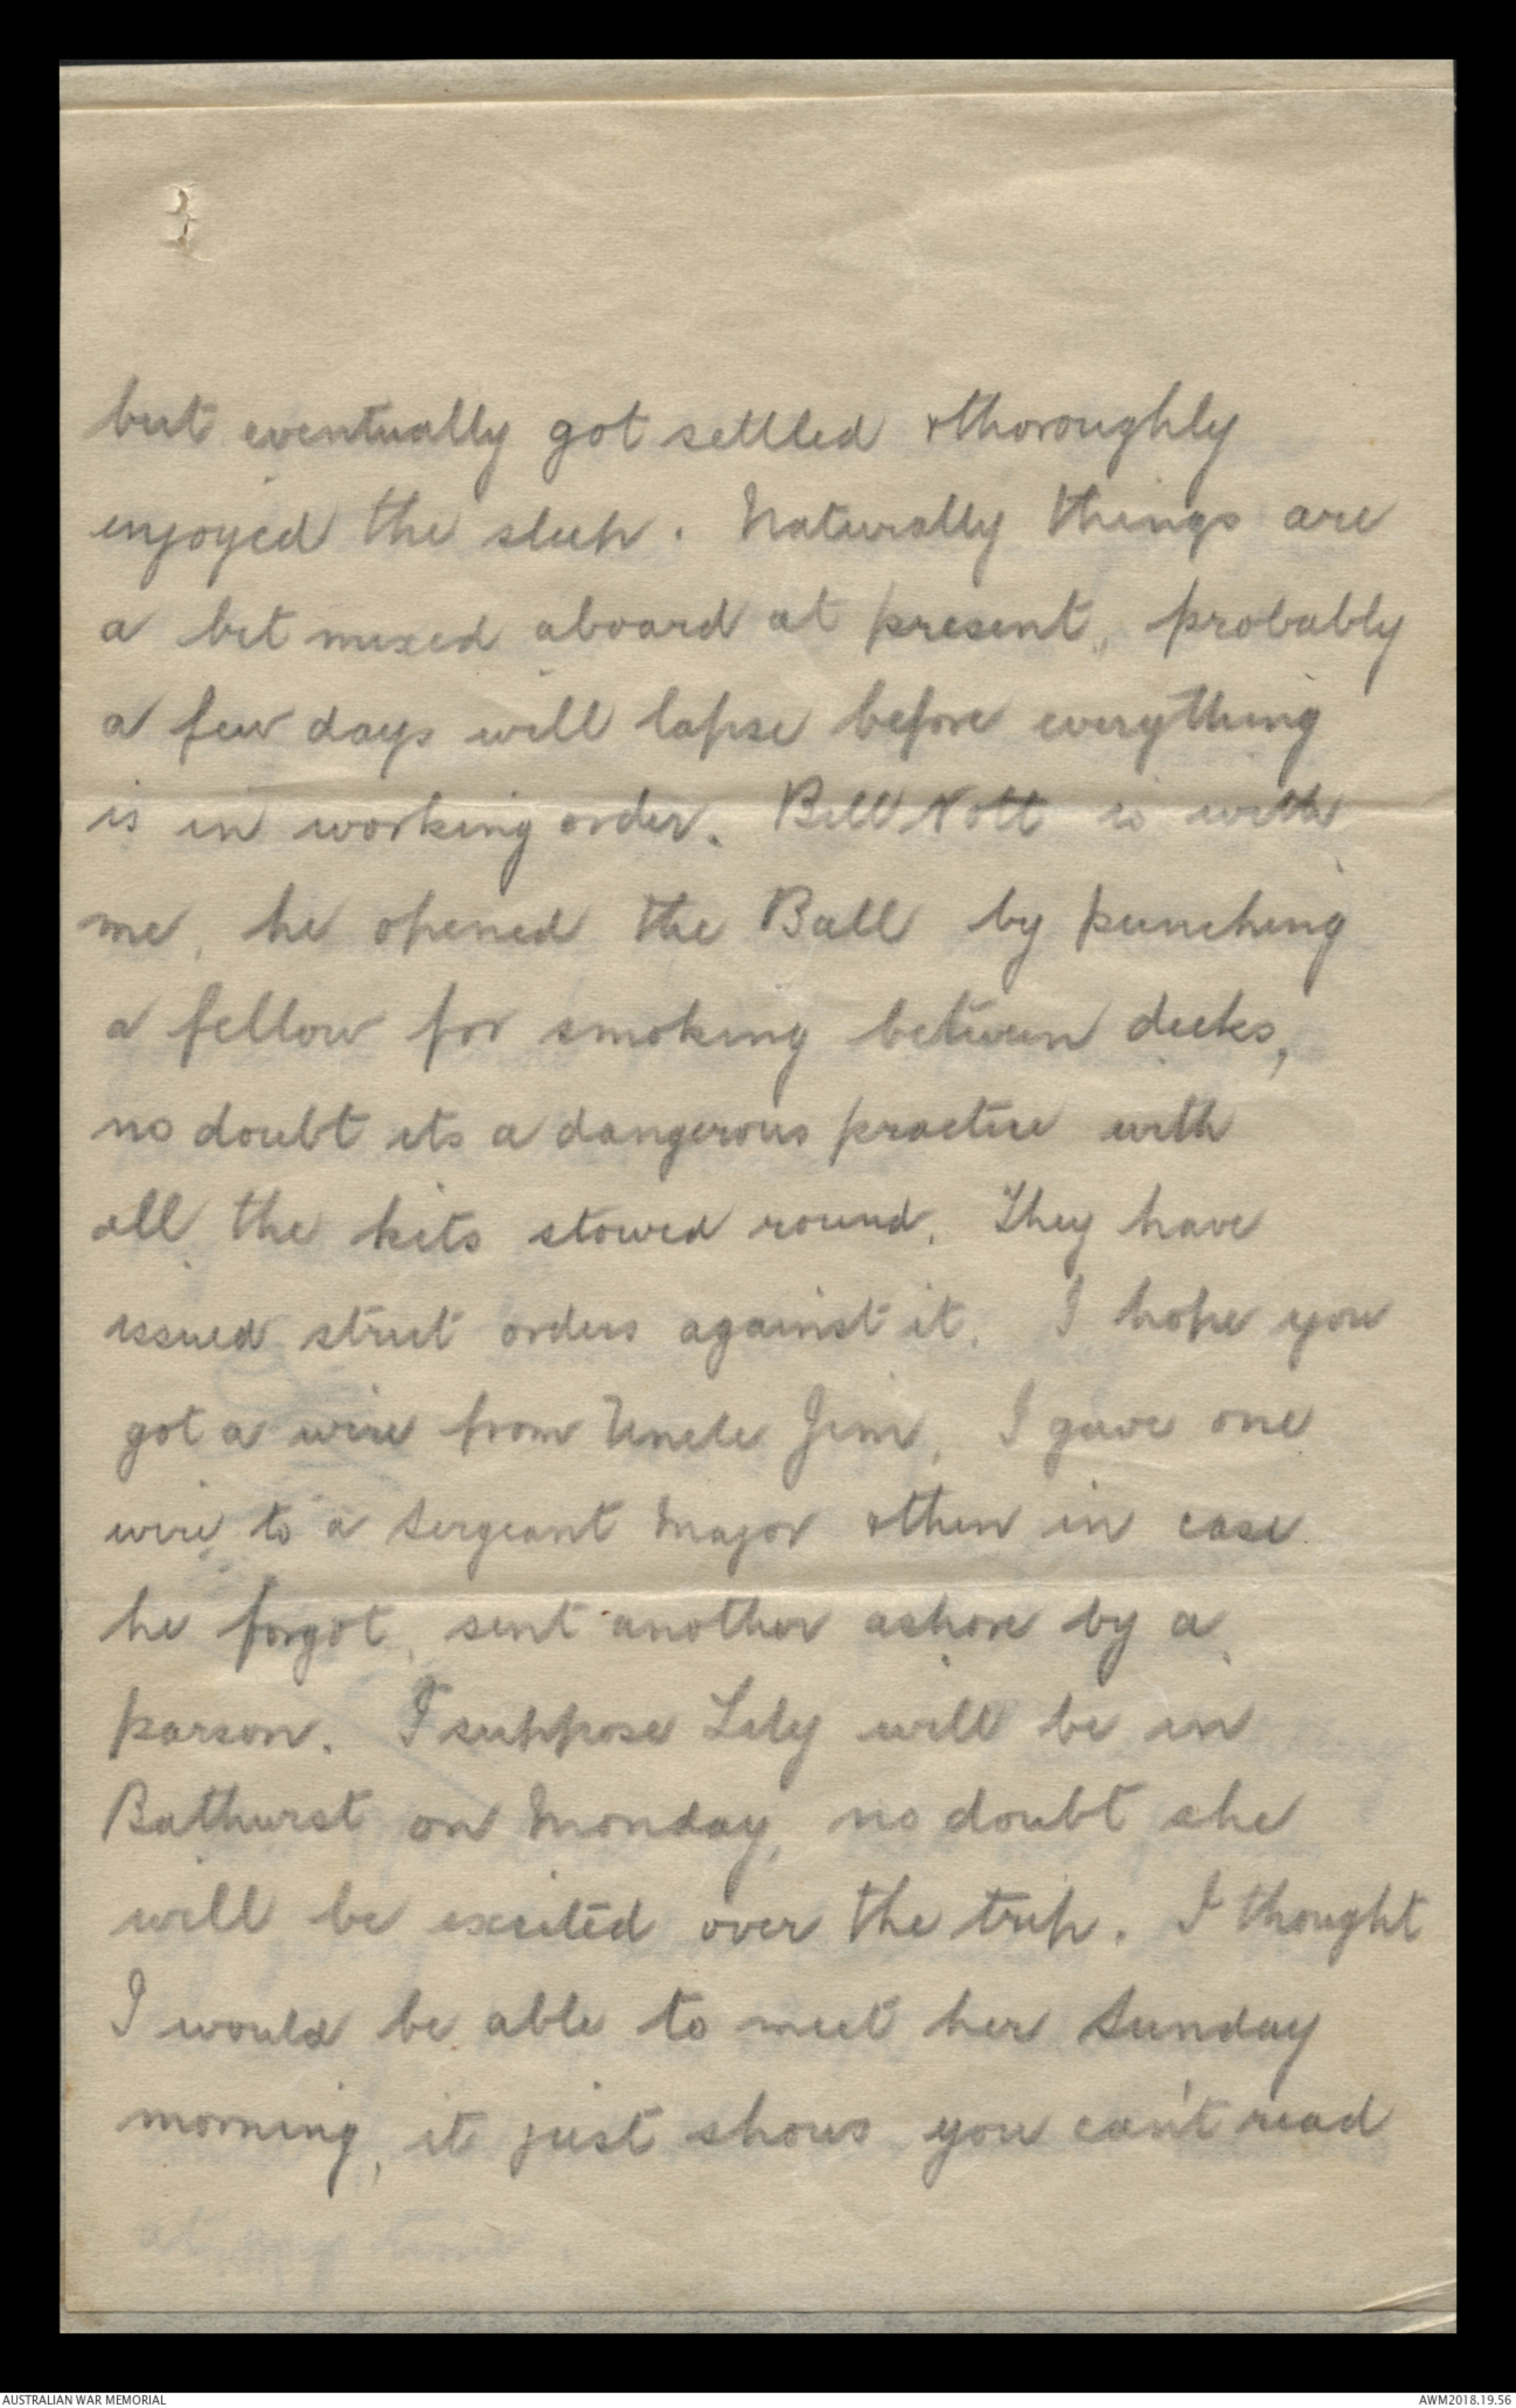 but eventually got settled & thoroughly
enjoyed the sleep. Naturally things are
a bit mixed aboard at present, probably
a few days will lapse before everything
is in working order. Bill Nott is with
me, he opened the Ball by punching
a fellow for smoking between decks,
no doubt its a dangerous practice with
all the kits stowed round. They have
issued strict orders against it. I hope you
got a wire from Uncle Jim, I gave one
wire to a Sergeant Major & then in case
he forgot, sent another ashore by a
parson. I suppose Lily will be in
Bathurst on Monday, no doubt she
will be excited over the trip. I thought
I would be able to meet her Sunday
morning, it just shows you can't read
AUSTRALIAN WAR MEMORIAL
AWM2018.19.56